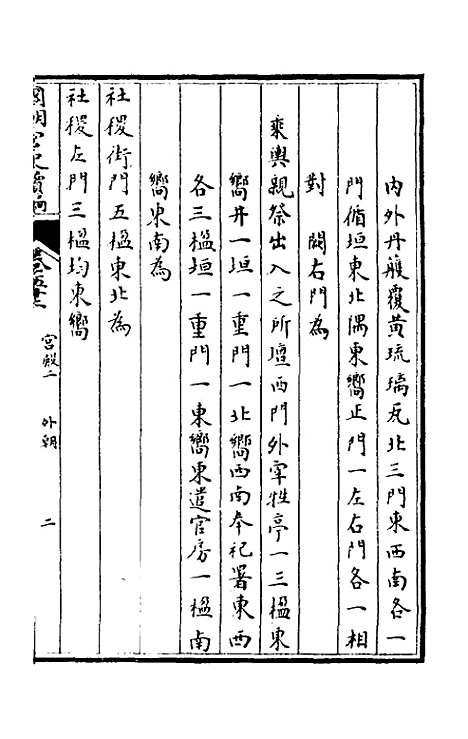 內外丹雘覆黃琉璃瓦北三門東西南各一
門循垣東北隅東嚮正門一左右門各一相
對 闕右門為
乘輿親祭出入之所壇西門外宰牲亭一三楹東
嚮井一垣一重門一北嚮西南奉祀署東西
各三楹垣一重門一東嚮東遣官房一楹南
嚮東南為
社稷街門五楹東北為
社稷左門三楹均東嚮
國朝宮史續編
宮殿二 外朝 二